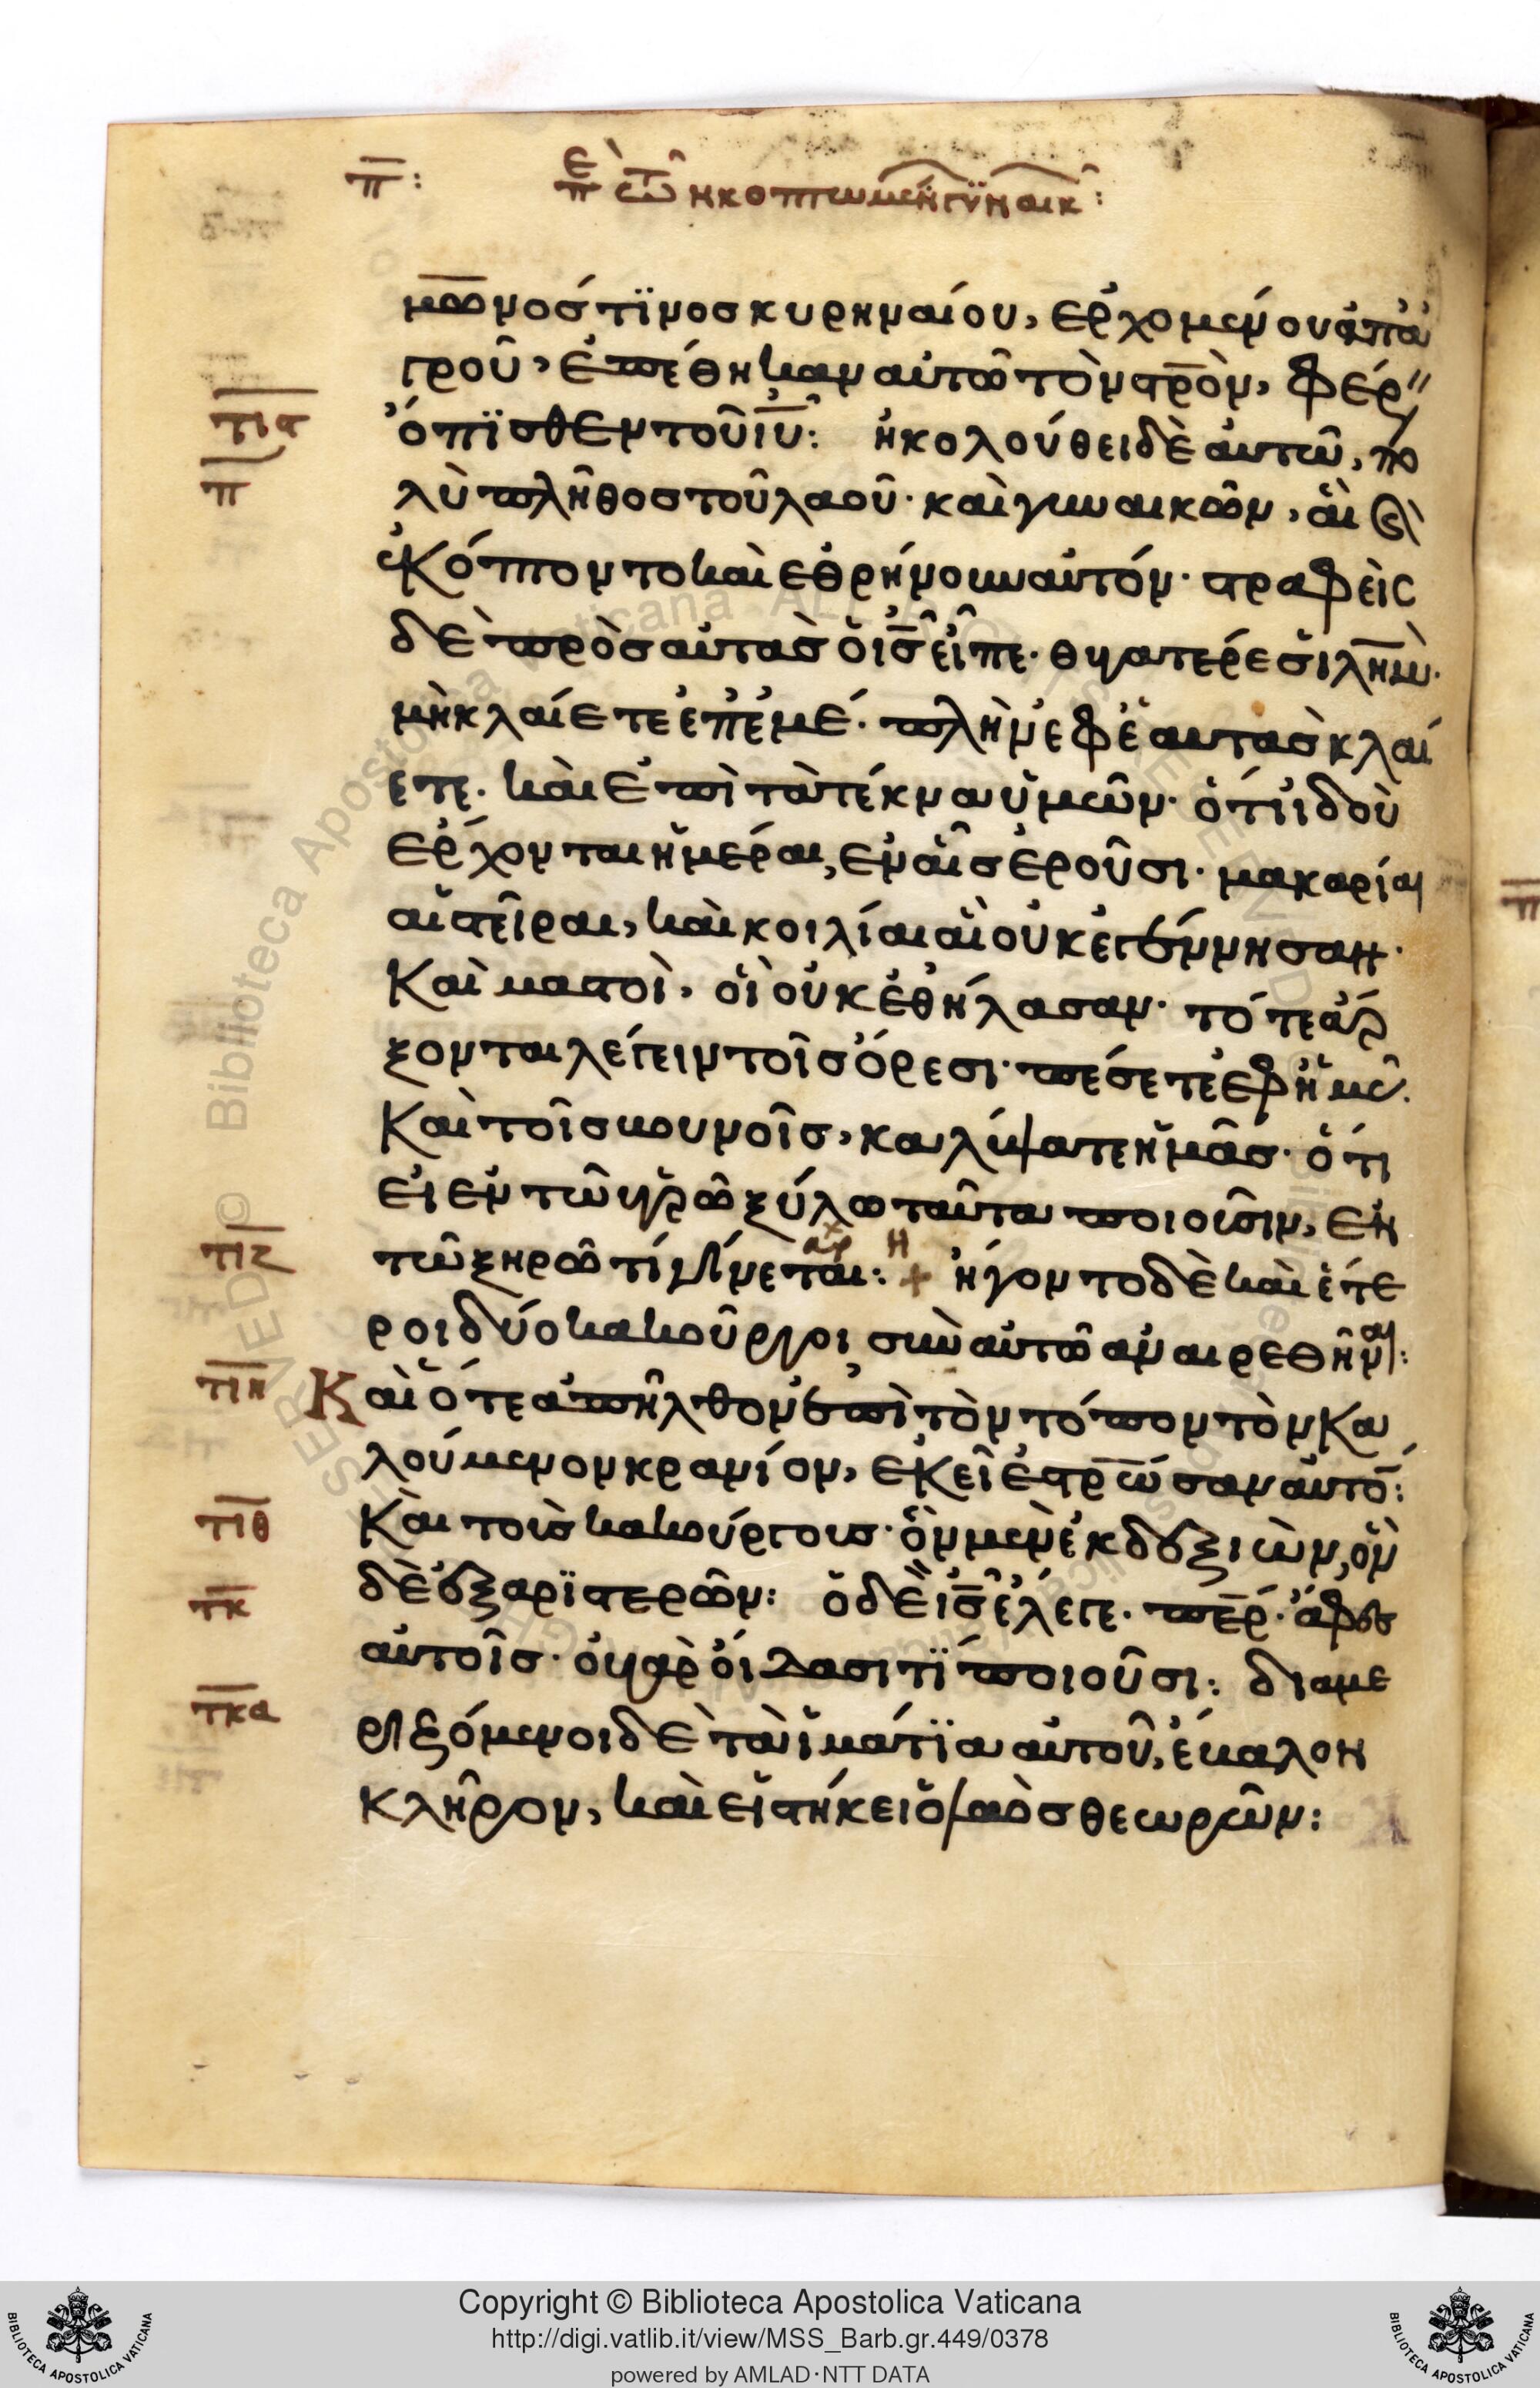 π: ἐπ τῶν κοπτωμένων γυναικῶν:
μωνόστινοσ κυρηναίου, ἐρχομένου ἀπ ἀ
γροῦ, ἐπέθηκαν αὐτῶ τὸν στρον, φέρ"
ὄπισθεν τοῦ ιυ: ἠκολούθει δὲ αὐτῶ, πο
λὺ πλῆθοσ τοῦ λαοῦ· καὶ γυναικῶν, αἳ καὶ
ἐκόπτοντο καὶ ἐθρήνουν αὐτόν· στραφεὶς
δὲ πρὸσ αὐτὰσ ὁ ισ εἶπε· θυγατέρεσ ιλημ·
μὴ κλαίετε ἐπ' ἐμέ· πλὴν ἐφ' ἑαυτὰσ κλαί
ετε· καὶ ἐπὶ τὰ τέκνα ὑμῶν· ὅτι ἰδοὺ
ἔρχονται ἡμέραι, ἐν αἷσ ἐροῦσι· μακάριαι
αἱ στεῖραι, καὶ κοιλίαι αἳ οὐκ ἐγέννησαν·
Καὶ μαστοὶ, οἳ οὐκ ἐθήλασαν· τότε ἄρ
ξονται λέγειν τοῖσ ὄρεσι· πέσετε ἐφ' ἡμᾶς·
Καὶ τοῖσ βουνοῖσ, καλύψατε ἡμᾶσ· ὅτι
εἰ ἐν τῶ ὑγρῶ ξύλω ταῦτα ποιοῦσιν, ἐν
τῶ ξηρῶ τί γίνεται: + ἤγοντο δὲ καὶ ἕτε
ροι δύο κακοῦργοι σὺν αὐτῶ ἀναιρεθῆναι:
Καὶ ὅτε ἀπῆλθον ἐπὶ τὸν τόπον τὸν Κα
λούμενον κρανίον, ἐκεῖ ἐστρωσαν αὐτό:
Καὶ τοὺσ κακούργουσ· ὃν μὲν ἐκ δεξιῶν, ὃν
δὲ ἐξ ἀριστερῶν: ὁ δὲ ισ ἔλεγε· περ· ἄφεσ
αὐτοῖσ· οὐ γὰρ οἴδασι τί ποιοῦσι: διαμε
ριζόμενοι δὲ τὰ ἱμάτια αὐτοῦ, ἔβαλον
κλῆρον, καὶ εἱστήκει ὁ λαὸσ θεωρῶν:
τιϛ
π
τιζ
αρχ
τιη
τιθ
τκ
τκα
Copyright © Biblioteca Apostolica Vaticana
http://digi.vatlib.it/view/MSS_Barb.gr.449/0378
powered by AMLAD·NTT DATA